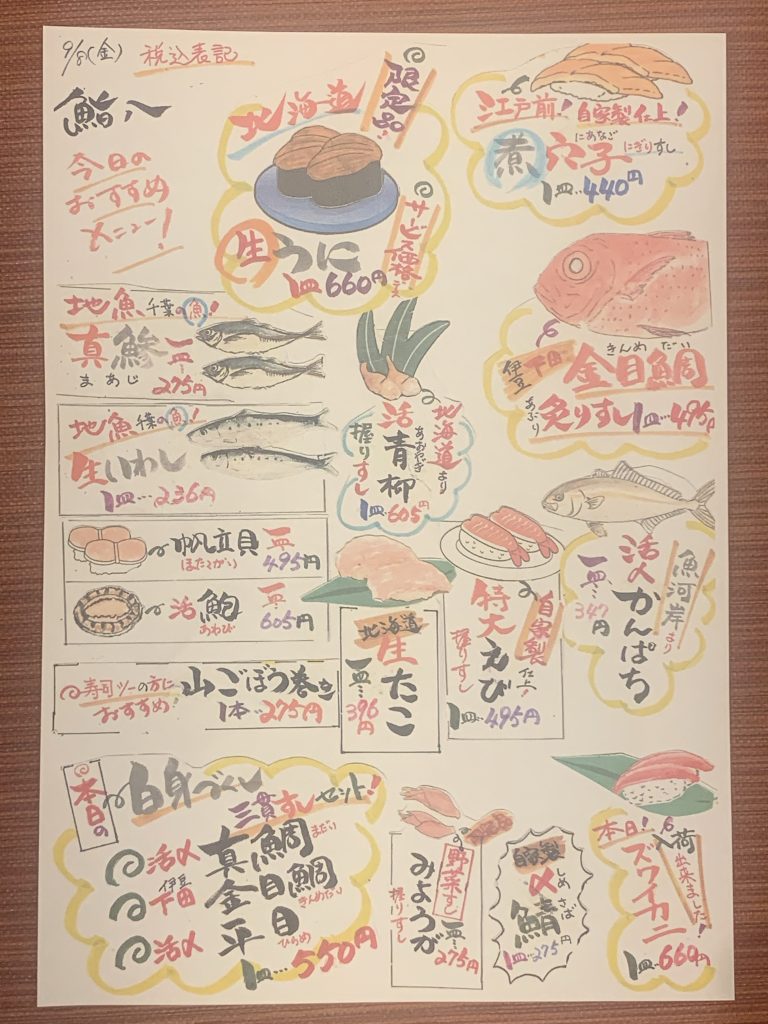 9/8(金) 税込表記
鮨八
今日の
おすすめ
メニュー!
北海道
限定品!
生うに
1皿660円
サービス価格です
江戸前! 自家製仕上!
にあなご
煮穴子 にぎりすし
1皿…440円
地魚 千葉の魚!
真鯵 一皿…
まあじ 275円
地魚 千葉の魚!
生いわし
1皿…236円
北海道より
活青柳
あおやぎ
握りすし
1皿…605円
きんめだい
伊豆下田 金目鯛
あぶり
炙りすし1皿…495円
帆立貝 一皿…
ほたてがい 495円
活鮑 一皿…
あわび 605円
寿司ツーの方に
おすすめ!
山ごぼう巻き
1本…275円
北海道
生たこ
一皿…
396円
自家製仕上!
特大えび
握りすし
1皿…495円
魚河岸より
活〆かんぱち
一皿…
347円
本日の
白身づくし
三貫すしセット!
活〆 真鯛 まだい
伊豆
下田 金目鯛 きんめだい
活〆 平目 ひらめ
1皿…550円
野菜すし
みょうが
握りすし
一皿…
275円
自家製
しめさば
〆鯖
1皿…275円
本日!入荷出来ました!
ズワイカニ
1皿…660円